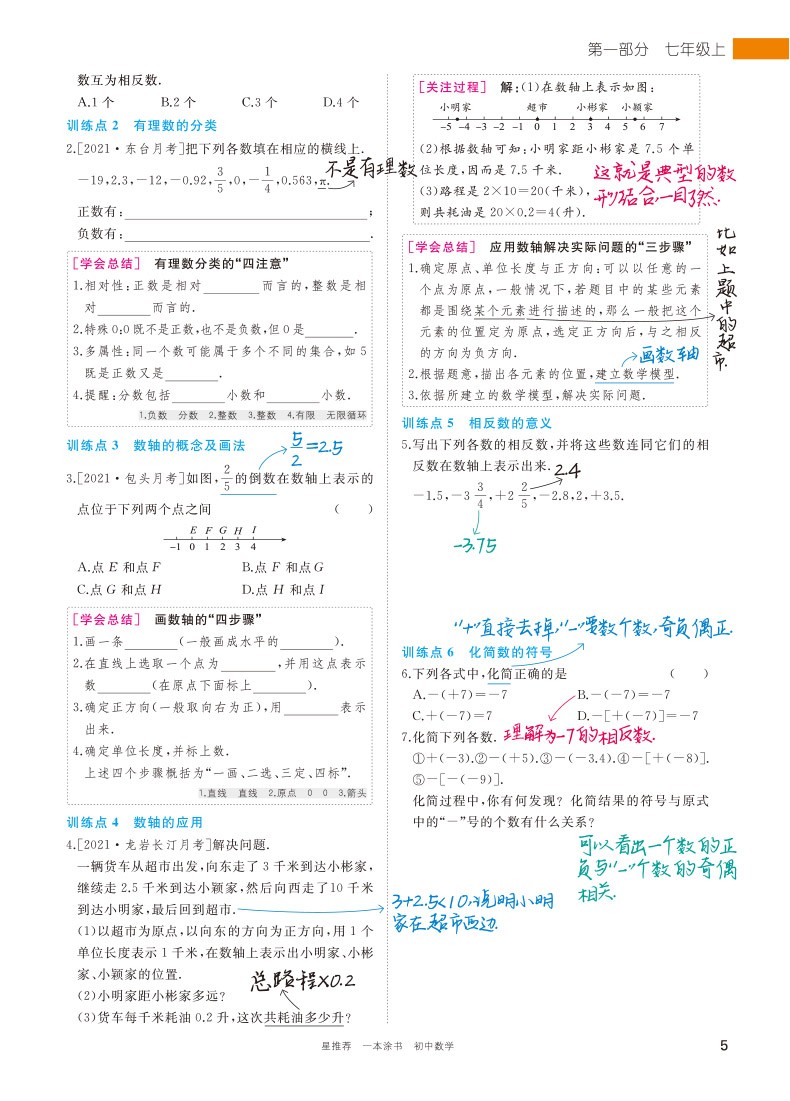 第一部分　七年级上
数互为相反数.
A.1 个　B.2 个　C.3 个　D.4 个
训练点 2　有理数的分类
2.[2021·东台月考]把下列各数填在相应的横线上.
不是有理数
－19,2.3,－12,－0.92,3/5,0,－1/4,0.563,π.
正数有:________;
负数有:________.
[学会总结]　有理数分类的“四注意”
1.相对性:正数是相对________而言的,整数是相
对________而言的.
2.特殊 0:0 既不是正数,也不是负数,但 0 是________.
3.多属性:同一个数可能属于多个不同的集合,如 5
既是正数又是________.
4.提醒:分数包括________小数和________小数.
1.负数　分数　2.整数　3.整数　4.有限　无限循环
训练点 3　数轴的概念及画法
5/2=2.5
3.[2021·包头月考]如图,2/5的倒数在数轴上表示的
点位于下列两个点之间　(　　)
E F G H I
－1 0 1 2 3 4
A.点 E 和点 F　B.点 F 和点 G
C.点 G 和点 H　D.点 H 和点 I
[学会总结]　画数轴的“四步骤”
1.画一条________(一般画成水平的________).
2.在直线上选取一个点为________,并用这点表示
数________(在原点下面标上________).
3.确定正方向(一般取向右为正),用________表示
出来.
4.确定单位长度,并标上数.
上述四个步骤概括为“一画、二选、三定、四标”.
1.直线　直线　2.原点　0　0　3.箭头
训练点 4　数轴的应用
4.[2021·龙岩长汀月考]解决问题.
一辆货车从超市出发,向东走了 3 千米到达小彬家,
继续走 2.5 千米到达小颖家,然后向西走了10 千米
到达小明家,最后回到超市.
(1)以超市为原点,以向东的方向为正方向,用 1 个
单位长度表示 1 千米,在数轴上表示出小明家、小彬
家、小颖家的位置.
(2)小明家距小彬家多远?
总路程×0.2
(3)货车每千米耗油 0.2 升,这次共耗油多少升?
[关注过程]　解:(1)在数轴上表示如图:
小明家　超市　小彬家　小颖家
－5 －4 －3 －2 －1 0 1 2 3 4 5 6 7
(2)根据数轴可知:小明家距小彬家是 7.5 个单
位长度,因而是 7.5 千米.
(3)路程是 2×10＝20(千米),
则共耗油是 20×0.2＝4(升).
这就是典型的数
形结合,一目了然.
[学会总结]　应用数轴解决实际问题的“三步骤”
1.确定原点、单位长度与正方向:可以以任意的一
个点为原点,一般情况下,若题目中的某些元素
都是围绕某个元素进行描述的,那么一般把这个
元素的位置定为原点,选定正方向后,与之相反
的方向为负方向.
比如上题中的超市.
画数轴
2.根据题意,描出各元素的位置,建立数学模型.
3.依据所建立的数学模型,解决实际问题.
训练点 5　相反数的意义
5.写出下列各数的相反数,并将这些数连同它们的相
反数在数轴上表示出来.
2.4
－1.5,－3 3/4,＋2 2/5,－2.8,2,＋3.5.
-3.75
“+”直接去掉,“-”要数个数,奇负偶正.
训练点 6　化简数的符号
6.下列各式中,化简正确的是　(　　)
A.－(＋7)＝－7　B.－(－7)＝－7
C.＋(－7)＝7　D.－[＋(－7)]＝－7
7.化简下列各数.
理解为-7的相反数.
①＋(－3).②－(＋5).③－(－3.4).④－[＋(－8)].
⑤－[－(－9)].
化简过程中,你有何发现? 化简结果的符号与原式
中的“－”号的个数有什么关系?
可以看出一个数的正
负与“-”个数的奇偶
相关.
3+2.5<10,说明小明
家在超市西边.
星推荐　一本涂书　初中数学
5